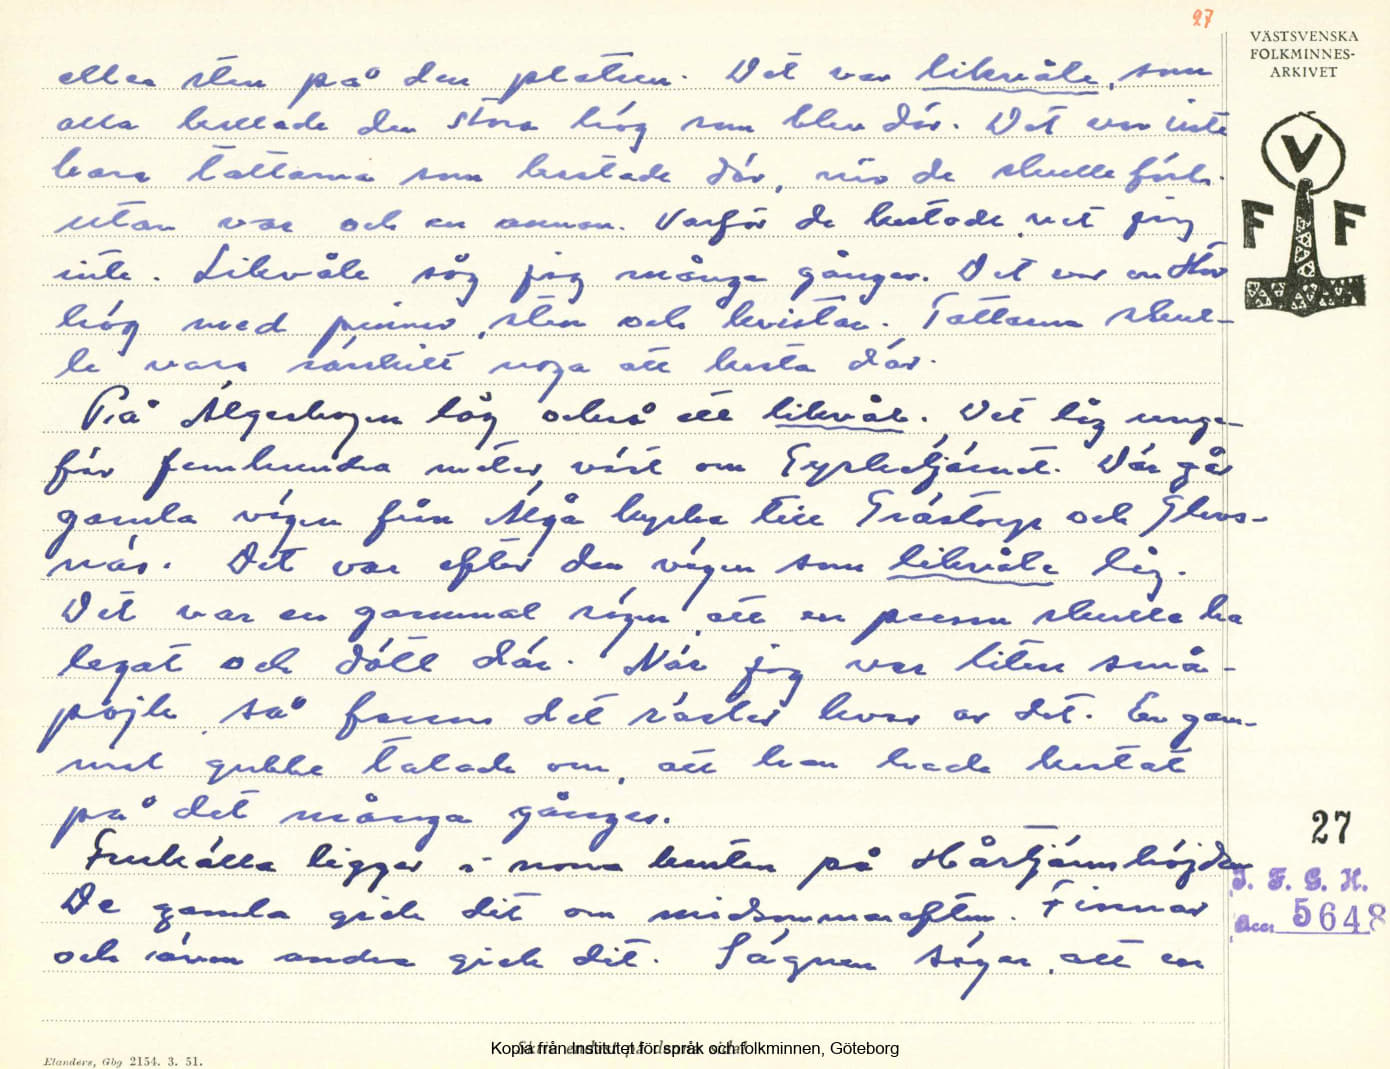 27
VÄSTSVENSKA
FOLKMINNES-
ARKIVET
V
F F
eller sten på den platsen. Det var likvåle, som
alla kallade den stora hög som blev där. Det var inte
bara tattarna som kastade där, när de skulle förbi.
utan var och en annan. Varför de kastade, vet jag
inte. Likvåle såg jag många gånger. Det var en stor
hög med pinnar, sten och kvistar. Tattarna skul-
le vara särskilt noga att kasta där.
På Älgeskogen låg också ett likvål. Det låg unge-
fär femhundra meter väst om Gyrketjärnet. Där går
gamla vägen från Älgå kyrka till Fråstorp och Glras-
näs. Det var efter den vägen som likvåle låg.
Det var en gammal sägen, att en person skulle ha
legat och dött där. När jag var liten små-
pojk, så fanns det rester kvar av det. En gam-
mal gubbe talade om, att han hade kastat
på det många gånger.
Frukälla ligger i norra kanten på Hårtjärnshöjden
De gamla gick dit om midsommaraften. Finnar
och även andra gick dit. Sägnen säger, att en
27
I. F. G. H.
Acc. 5648
Kopia från Institutet för språk och folkminnen, Göteborg
Elanders, Gbg 2154. 3. 51.